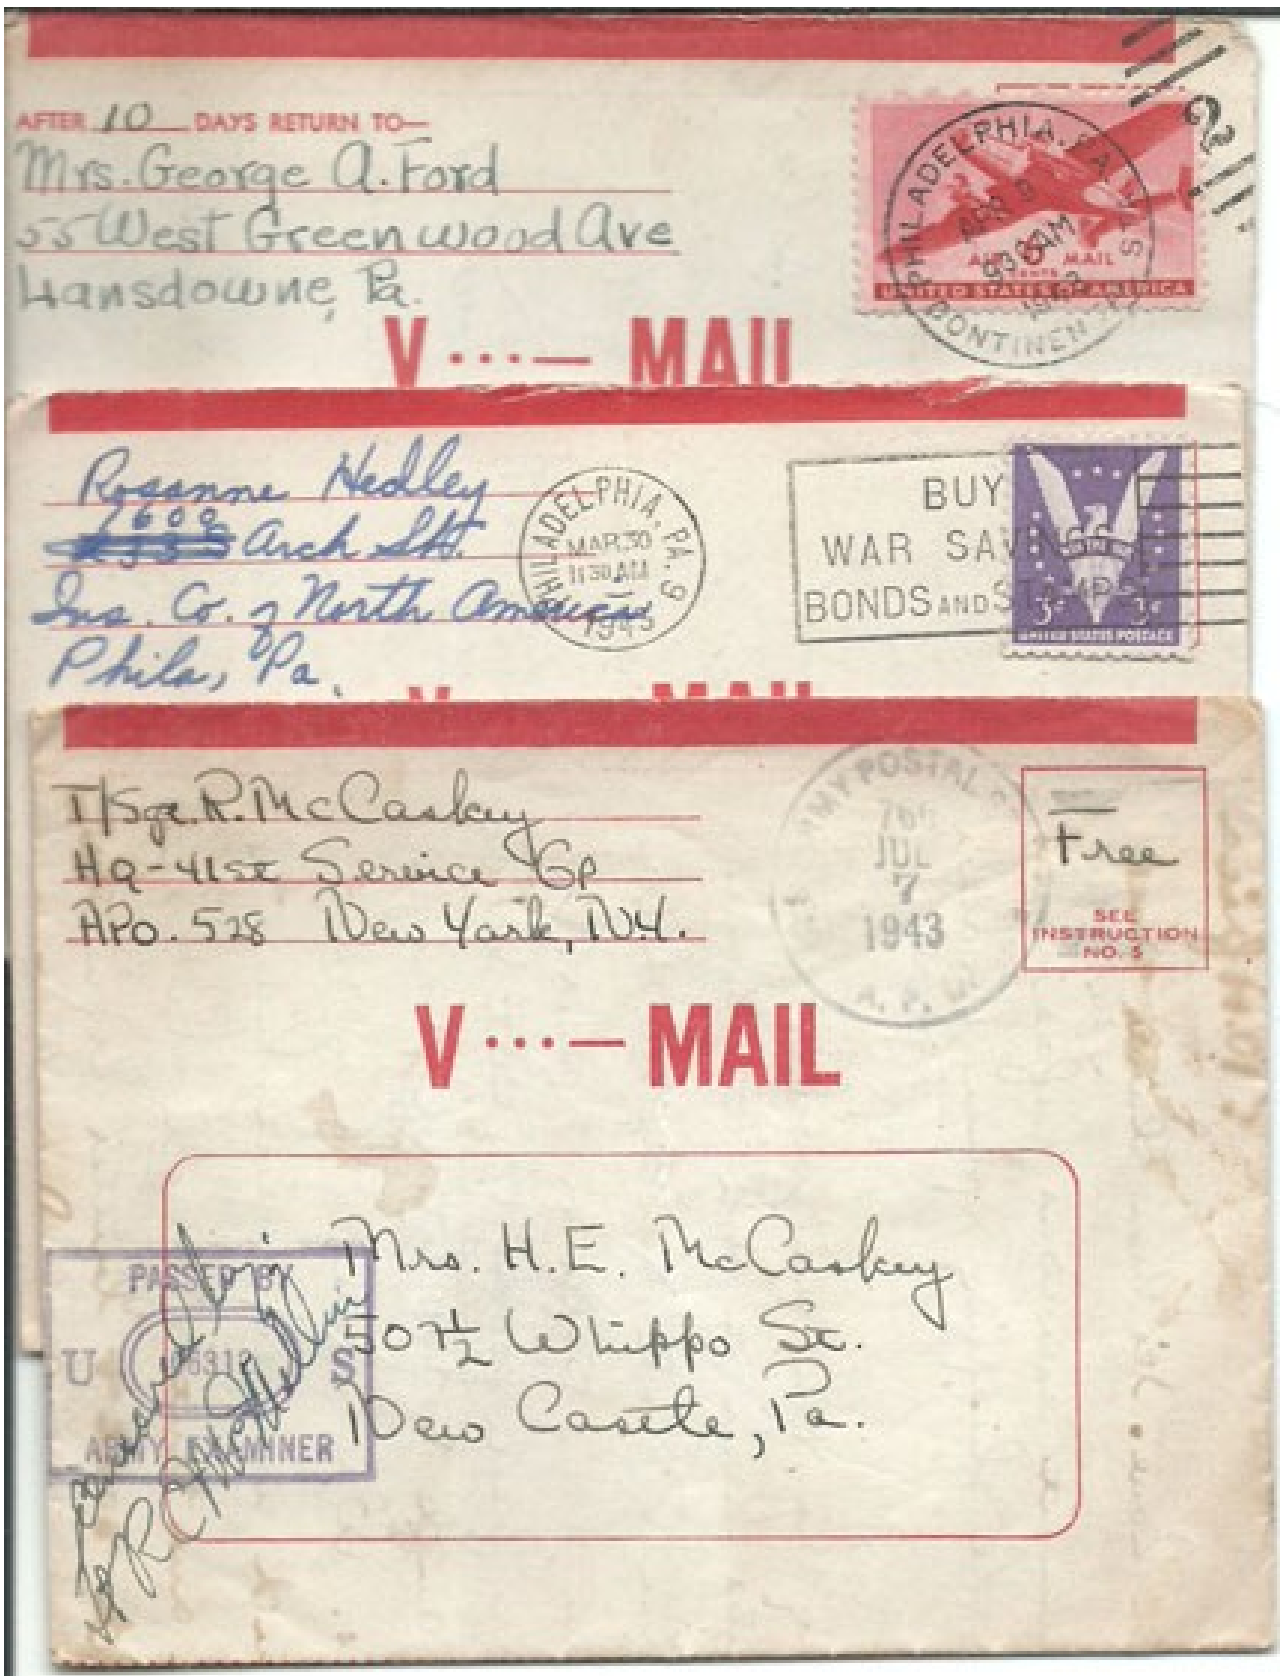 AFTER 10 DAYS RETURN TO—
Mrs. George A. Ford
55 West Greenwood Ave
Lansdowne, Pa.
PHILADELPHIA, PA.
APR 9
930AM
AIR 6 MAIL
CENTS
UNITED STATES OF AMERICA
2
V ···— MAIL
Rosanne Hedley
1600
Arch St.
Ins. Co. of North America
Phila, Pa
PHILADELPHIA, PA. 9
MAR 30
1130 AM
1943
BUY
WAR SAVINGS
BONDS AND STAMPS
3¢ 3¢
UNITED STATES POSTAGE
V MAIL
T/Sgt. R. McCaskey
HQ-41st Service Gp
APO. 528 New York, N.Y.
ARMY POSTAL
JUL
7
1943
Free
SEE
INSTRUCTION
NO. 5
V ···— MAIL
Mrs. H. E. McCaskey
507½ Whippo St.
New Castle, Pa.
PASSED BY
U S
ARMY EXAMINER
Censored by